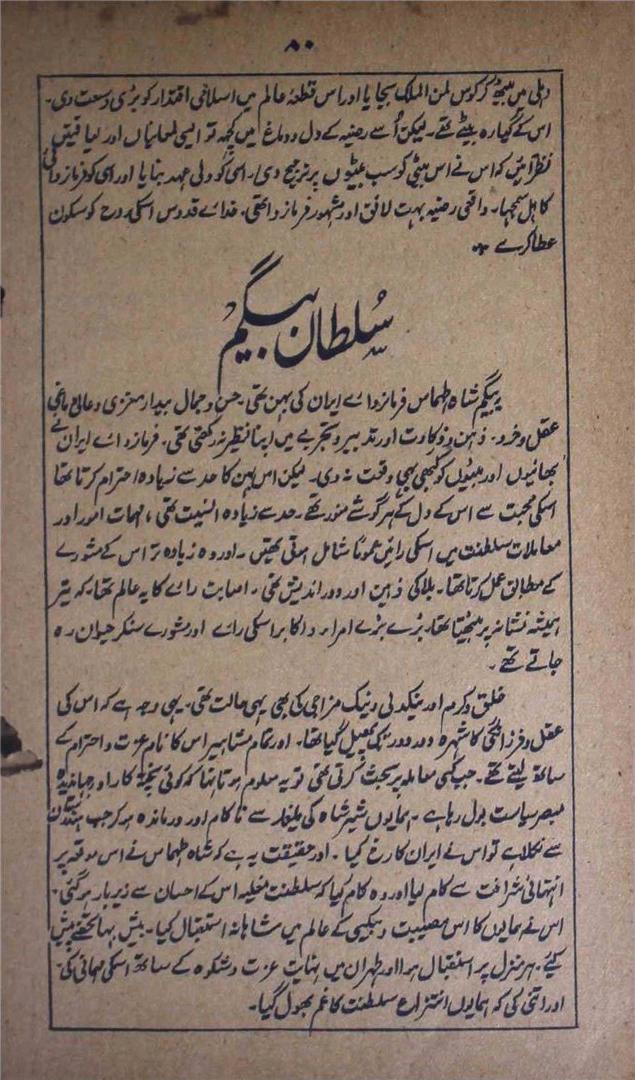 ۸۰
دہلی میں بیٹھ کر کوس لمن الملک بجایا اور اس قطعۂ عالم میں اسلامی اقتدار کو بڑی وسعت دی۔
اس کے گیارہ بیٹے تھے۔ لیکن اُسے رضیہ کے دل و دماغ میں کچھ تو ایسی لمعانیاں اور لیاقتیں
نظر آئیں کہ اس نے اس بیٹی کو سب بیٹوں پر ترجیح دی۔ اسی کو ولی عہد بنایا اور اسی کو فرمانروائی
کا اہل سمجھا۔ واقعی رضیہ بہت لائق اور مشہور فرمانروا تھی۔ خدائے قدوس اسکی روح کو سکون
عطا کرے
سُلطان بیگم
یہ بیگم شاہ طہماس فرمانروائے ایران کی بہن تھی۔ حسن و جمال بیدار مغزی و عالی دماغی
عقل و خرد۔ ذہن و ذکاوت اور تدبیر و تجربے میں اپنا نظیر نہ رکھتی تھی۔ فرمانروائے ایران نے
بھائیوں اور بیٹوں کو کبھی بھی وقعت نہ دی۔ لیکن اس بہن کا حد سے زیادہ احترام کرتا تھا
اسکی محبت سے اس کے دل کے ہر گوشے منور تھے۔ حد سے زیادہ انسیت تھی، مہمات امور اور
معاملات سلطنت میں اسکی رائیں عموماً شامل ہوتی تھیں۔ اور وہ زیادہ تر اس کے مشورے
کے مطابق عمل کرتا تھا۔ بلا کی ذہین اور دور اندیش تھی۔ اصابت رائے کا یہ عالم تھا، کہ تیر
ہمیشہ نشانہ پر بیٹھتا تھا، بڑے بڑے امراء و اکابر اسکی رائے اور مشورے سنکر حیران رہ
جاتے تھے۔
خلق و کرم اور نیکدلی و نیک مزاجی کی بھی یہی حالت تھی۔ یہی وجہ ہے کہ اس کی
عقل و فرزانگی کا شہرہ دور دور تک پھیل گیا تھا۔ اور تمام مشاہیر اس کا نام عزت و احترام کے
ساتھ لیتے تھے۔ جب کسی معاملہ پر بحث کرتی تھی تو یہ معلوم ہوتا تھا کہ کوئی پختہ کار اور جہاندیدہ
مبصر سیاست بول رہا ہے۔ ہمایوں شیر شاہ کی یلغار سے ناکام اور درماندہ ہو کر جب ہندوستان
سے نکلا ہے تو اس نے ایران کا رخ کیا۔ اور حقیقت یہ ہے کہ شاہ طہماس نے اس موقعہ پر
انتہائی شرافت سے کام لیا اور وہ کام کیا کہ سلطنت مغلیہ اس کے احسان سے زیر بار ہو گئی۔
اس نے ہمایوں کا اس مصیبت و بیکسی کے عالم میں شاہانہ استقبال کیا۔ بیش بہا تحفے پیش
کیے۔ ہر منزل پر استقبال ہوا اور طہران میں نہایت عزت و شکوہ کے ساتھ اسکی مہمانی کی۔
اور اتنی کی کہ ہمایوں انتزاع سلطنت کا غم بھول گیا۔